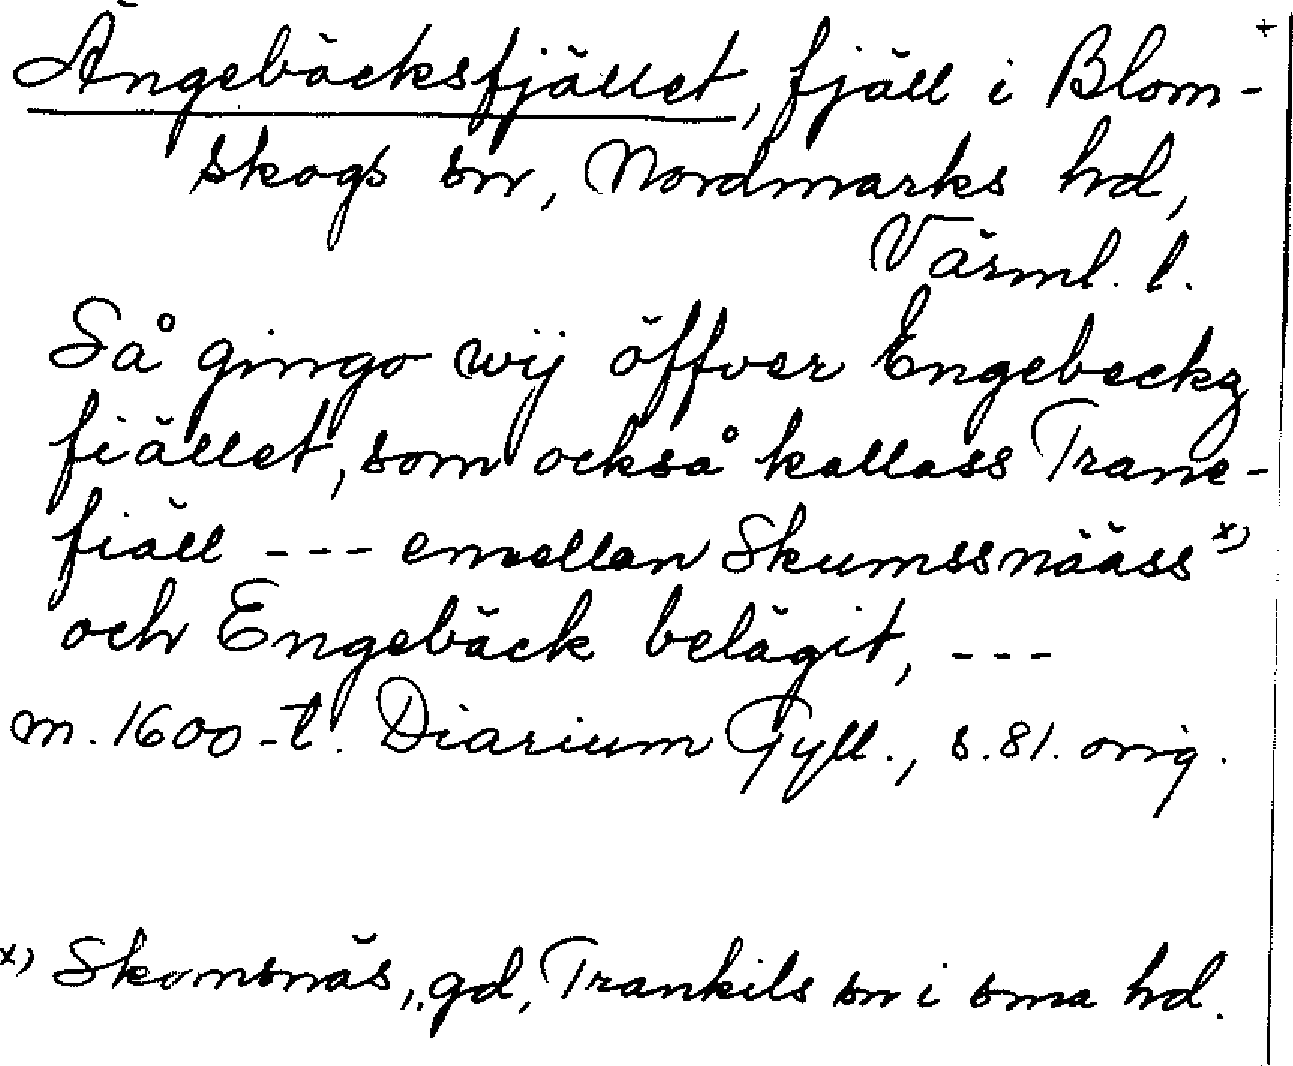 Ängebäcksfjället, fjäll i Blom-
skogs sn, Nordmarks hd,
Värml. l.
Så gingo wij öffver Engebeckz
fiället, som också kallass Trane-
fiäll --- emellan Skumssnääss x)
och Engebäck belägit, ---
m. 1600-t. Diarium Gyll., s. 81. orig.
x) Skomsnäs, gd, Trankils sn i sma hd.